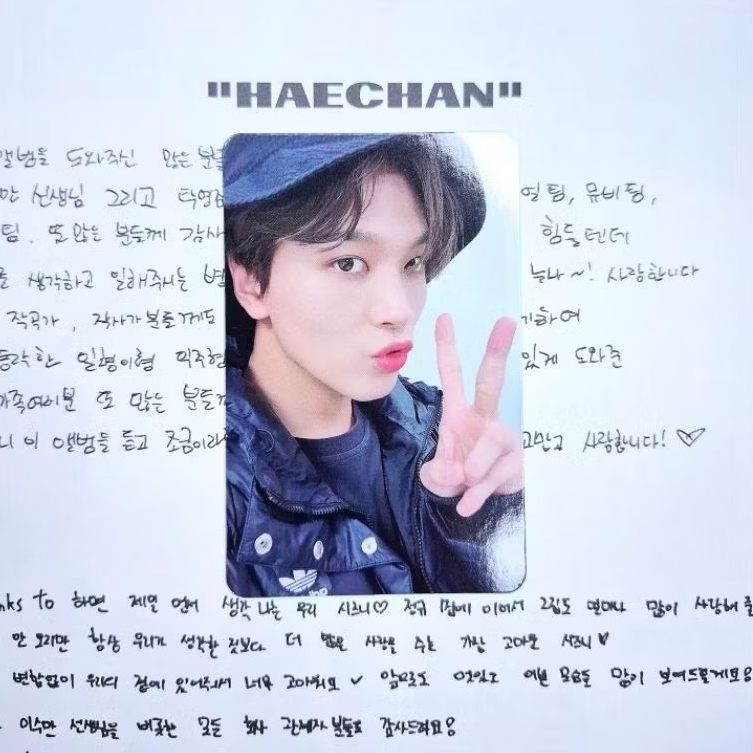 "HAECHAN"
앨범을 도와주신 많은 분들
만 선생님 그리고 탁영준
일 팀, 뮤비 팀,
팀. 또 많은 분들께 감사
힘들텐데
생각하고 일해주시는
누나~! 사랑합니다
작곡가, 작사가 분들께도
일형이형
있게 도와준
가족여러분 또 많은 분들
이 앨범을 듣고 조금이라
고맙고 사랑합니다! ♡
adidas
nks to 하면 제일 먼저 생각 나는 우리 시즈니♡ 정규 1집에 이어서 2집도 얼마나 많이 사랑해 줄
만 우리만 항상 우리가 생각한 것보다 더 많은 사랑을 주는 가장 고마운 시즈니♥
변함없이 우리의 곁에 있어주셔서 너무 고마워요 앞으로도 멋있고 예쁜 모습들 많이 보여드릴게요
이수만 선생님을 비롯한 모든 회사 관계자 분들도 감사드려요